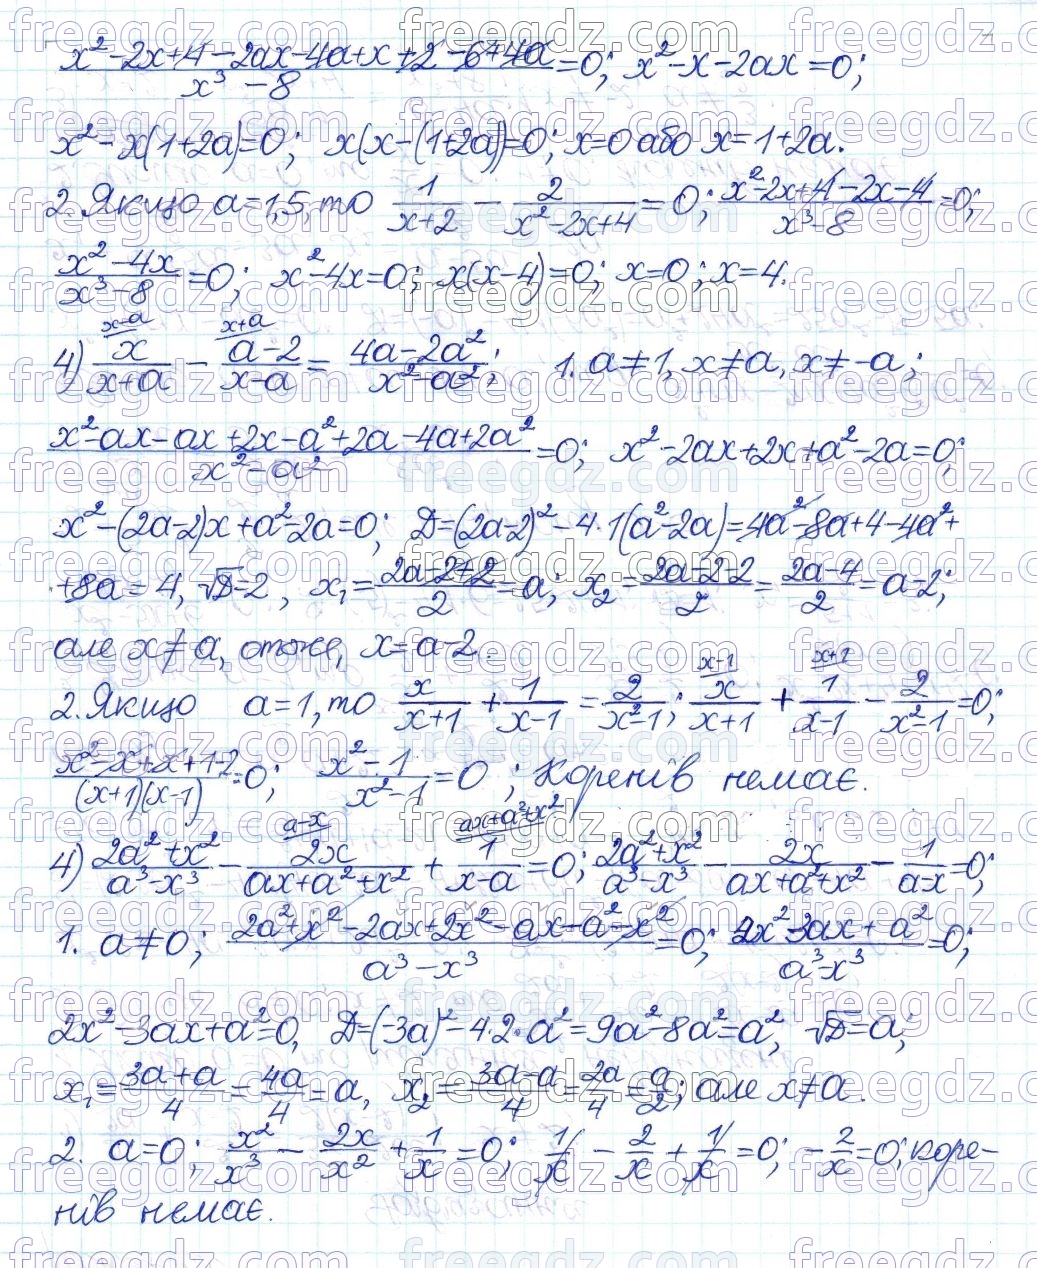 (x² - 2x + 4 - 2ax - 4a + x + 2 - 6 + 4a)/(x³ - 8) = 0; x² - x - 2ax = 0;
x² - x(1+2a) = 0; x(x-(1+2a)) = 0; x = 0 або x = 1+2a.
2. Якщо a = 1,5, то 1/(x+2) - 2/(x² - 2x + 4) = 0; (x² - 2x + 4 - 2x - 4)/(x³ - 8) = 0;
(x² - 4x)/(x³ - 8) = 0; x² - 4x = 0; x(x-4) = 0; x = 0; x = 4.
x-a x+a
4) x/(x+a) - (a-2)/(x-a) = (4a - 2a²)/(x² - a²); 1. a ≠ 1, x ≠ a, x ≠ -a;
(x² - ax - ax + 2x - a² + 2a - 4a + 2a²)/(x² - a²) = 0; x² - 2ax + 2x + a² - 2a = 0;
x² - (2a-2)x + a² - 2a = 0; Д = (2a-2)² - 4·1(a² - 2a) = 4a² - 8a + 4 - 4a² +
+ 8a = 4, √Д = 2, x₁ = (2a-2+2)/2 = a; x₂ = (2a-2-2)/2 = (2a-4)/2 = a-2;
але x ≠ a, отже, x = a-2.
x-1 x+1
2. Якщо a = 1, то x/(x+1) + 1/(x-1) = 2/(x²-1); x/(x+1) + 1/(x-1) - 2/(x²-1) = 0;
(x² - x + x + 1 - 2)/((x+1)(x-1)) = 0; (x² - 1)/(x² - 1) = 0; Коренів немає.
a-x ax+a²+x²
4) (2a² + x²)/(a³ - x³) - 2x/(ax + a² + x²) + 1/(x-a) = 0; (2a² + x²)/(a³ - x³) - 2x/(ax + a² + x²) - 1/(a-x) = 0;
1. a ≠ 0; (2a² + x² - 2ax + 2x² - ax - a² - x²)/(a³ - x³) = 0; (2x² - 3ax + a²)/(a³ - x³) = 0;
2x² - 3ax + a² = 0, Д = (-3a)² - 4·2·a² = 9a² - 8a² = a², √Д = a;
x₁ = (3a+a)/4 = 4a/4 = a, x₂ = (3a-a)/4 = 2a/4 = a/2; але x ≠ a.
2. a = 0; x²/x³ - 2x/x² + 1/x = 0; 1/x - 2/x + 1/x = 0; -2/x = 0; коре-
нів немає.
freegdz.com